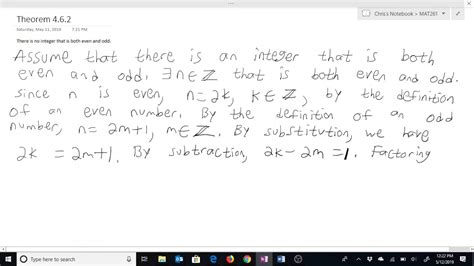 Chris's Notebook > MAT261
Theorem 4.6.2
Saturday, May 11, 2019 7:21 PM
There is no integer that is both even and odd.
Assume that there is an integer that is both
even and odd. ∃n∈ℤ that is both even and odd.
since n is even, n=2k, k∈ℤ, by the definition
of an even number. By the definition of an odd
number, n= 2m+1, m∈ℤ. By substitution, we have
2k = 2m+1. By subtraction, 2k-2m=1. Factoring
Type here to search
12:22 PM
5/12/2019